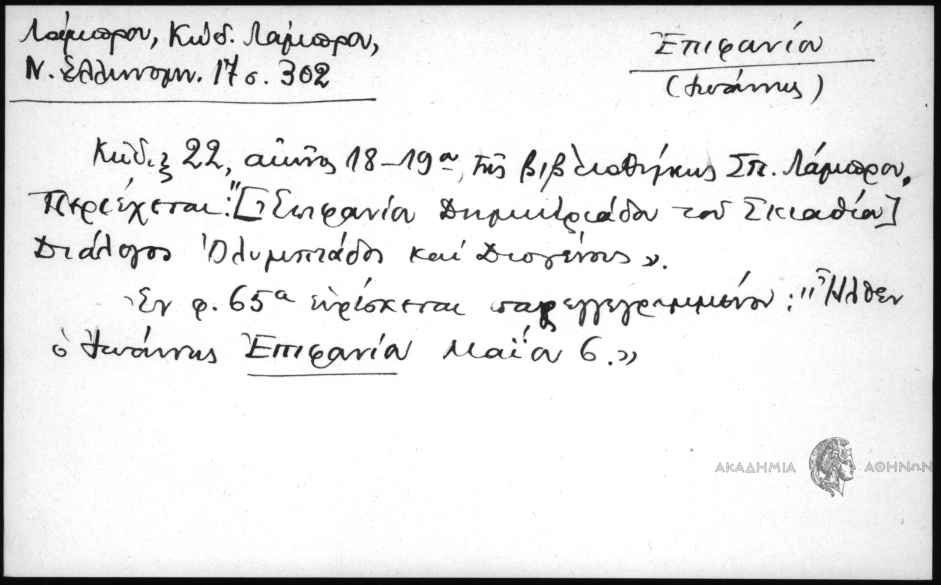 Λάμπρου, Κώδ. Λάμπρου,
Ν. Ἑλληνομν. 17 σ. 302
Ἐπιφανίου
(Ἰωάννης)
Κώδιξ 22, αἰῶνος 18-19ου, τῆς βιβλιοθήκης Σπ. Λάμπρου.
Περιέχεται: "[Ἐπιφανίου Δημητριάδου τοῦ Σκιαθίου]
Διάλογος Ὀλυμπιάδος καὶ Διογένους».
Ἐν φ. 65α εὑρίσκεται παρεγγεγραμμένον: "Ἦλθεν
ὁ Ἰωάννης Ἐπιφανίου Μαΐου 6.»
ΑΚΑΔΗΜΙΑ ΑΘΗΝΩΝ